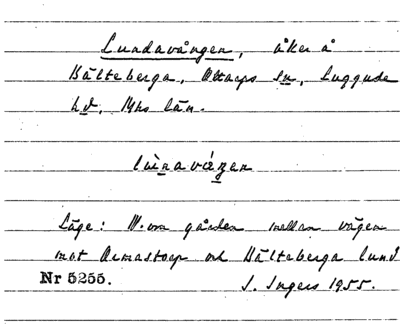 Lundavången, åker å
Bälteberga, Ottarps sn, Luggude
hd, Mhs län.
lùnaváŋen
Läge: N. om gården mellan vägen
mot Ormastorp och Bälteberga lund
Nr 5255. I. Ingers 1955.